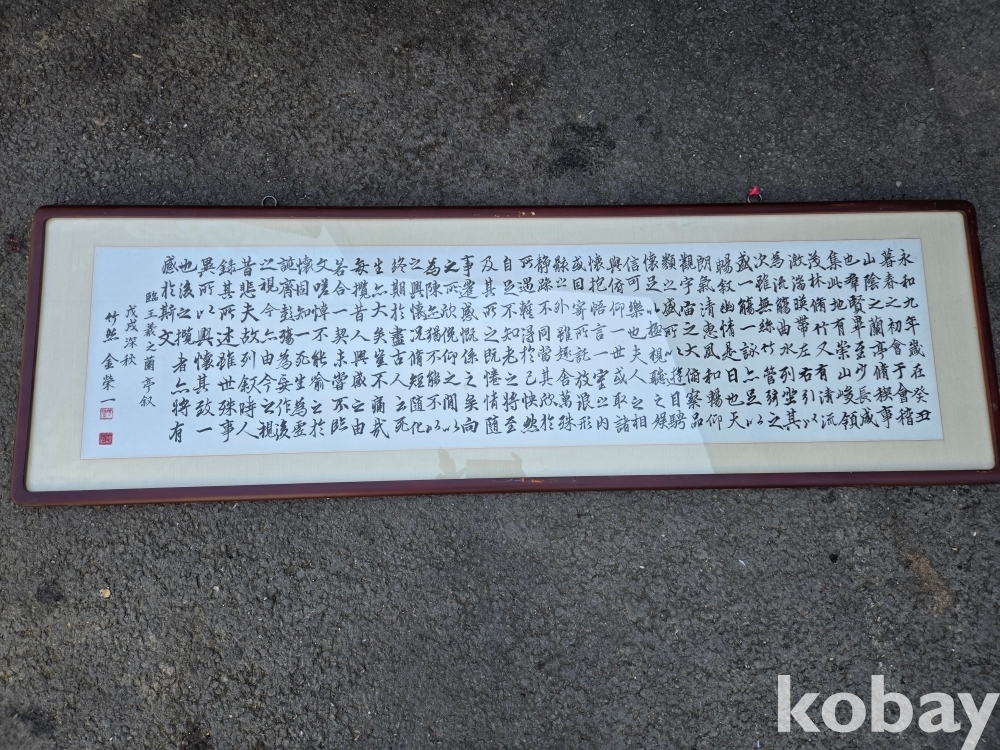 永和九年歲在癸丑
暮春之初會于會稽
山陰之蘭亭脩稧事
也群賢畢至少長咸
集此地有崇山峻領
茂林脩竹又有清流
激湍暎帶左右引以
為流觴曲水列坐其
次雖無絲竹管弦之
盛一觴一詠亦足以
暢敘幽情是日也天
朗氣清惠風和暢仰
觀宇宙之大俯察品
類之盛所以遊目騁
懷足以極視聽之娛
信可樂也夫人之相
與俯仰一世或取諸
懷抱悟言一室之內
或因寄所託放浪形
骸之外雖趣舍萬殊
靜躁不同當其欣於
所遇暫得於己快然
自足不知老之將至
及其所之既惓情隨
事遷感慨係之矣向
之所欣俛仰之間以
為陳迹猶不能不以
之興懷況脩短隨化
終期於盡古人云死
生亦大矣豈不痛哉
每攬昔人興感之由
若合一契未嘗不臨
文嗟悼不能喻之於
懷固知一死生為虛
誕齊彭殤為妄作後
之視今亦由今之視
昔悲夫故列敘時人
錄其所述雖世殊事
異所以興懷其致一
也後之攬者亦將有
感於斯文
臨王羲之蘭亭敘
戊戌深秋
竹然 金榮一
kobay